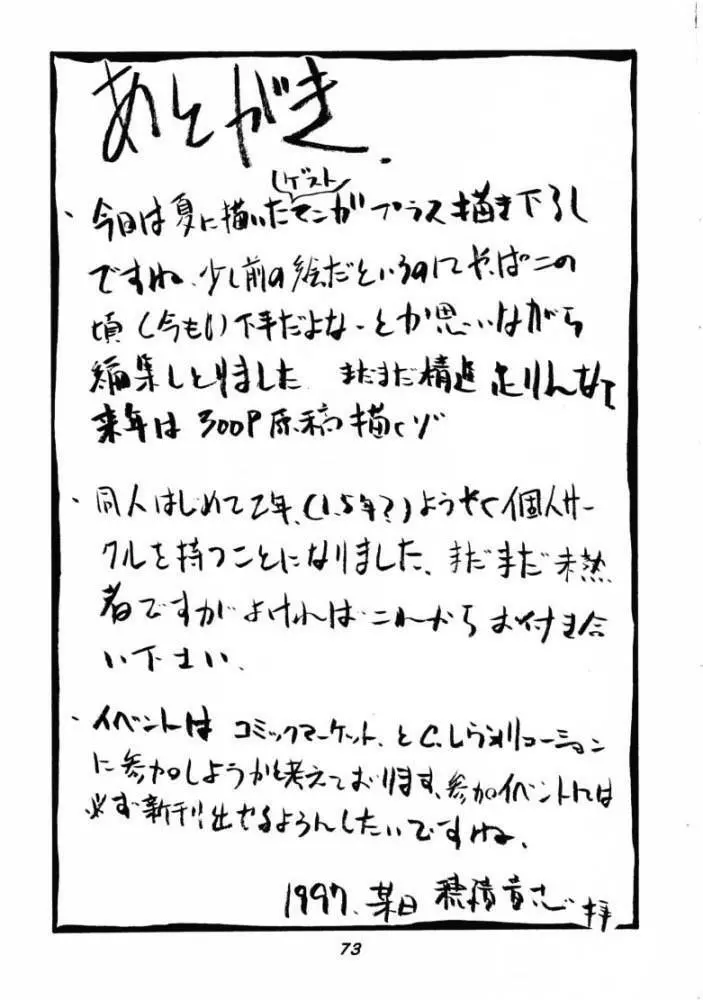 あとがき.
ゲスト
・今日は夏に描いたマンガプラス描き下ろし
ですね、少し前の絵だというのにやっぱこの
頃(今も)下手だよなーとか思いながら
編集しとりました まだまだ精進足りんなて
来年は300P原稿描くゾ
・同人はじめて2年、(1.5年?)ようやく個人サー
クルを持つことになりました、まだまだ未熟
者ですがよければこれからお付き合
い下さい、
・イベントは コミックマーケット、とC.レヴォリューション
に参加しようかと考えております、参加イベントには
必ず新刊出せるようんしたいですね、
1997、某日 穂積貴志 拝
73